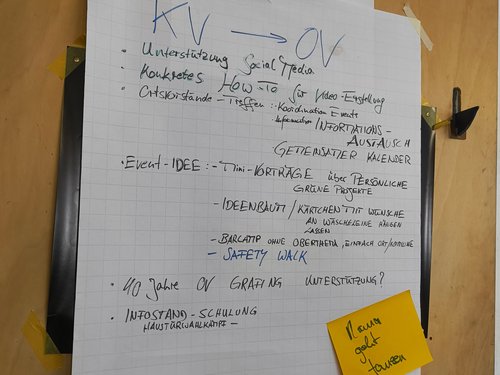 KV → OV
• Unterstützung Social Media
• Konkretes How-To für Video-Erstellung
• Ortsvorstände-Treffen: - Koordination Events
- Information/INFORMATIONS-
AUSTAUSCH
GEMEINSAMER KALENDER
• EVENT-IDEE: - Mini-VORTRÄGE über PERSÖNLICHE
GRÜNE PROJEKTE
- IDEENBAUM / KÄRTCHEN MIT WÜNSCHE
AN WÄSCHELEINE HÄNGEN
LASSEN
- BARCAMP OHNE OBERTHEMA, EINFACH ORT/
- SAFETY WALK
• 40 Jahre OV GRAFING UNTERSTÜTZUNG?
• INFOSTAND-SCHULUNG
HAUSTÜRWAHLKAMPF -
Mama
geht
tanzen